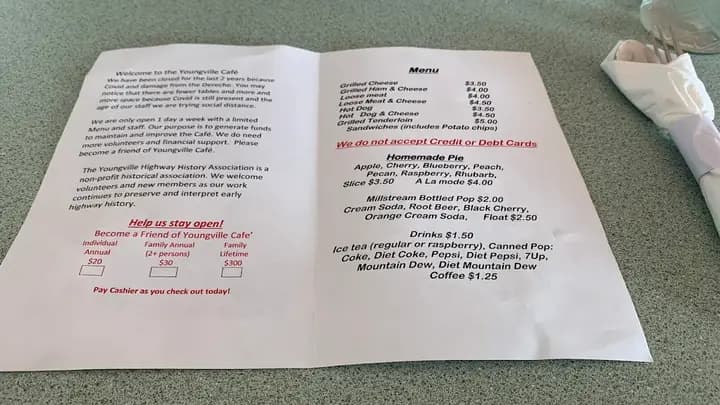 Welcome to the Youngville Café
We have been closed for the last 2 years because
Covid and damage from the Derecho. You may
notice that there are fewer tables and more and
more space because Covid is still present and the
age of our staff we are trying social distance.
We are only open 1 day a week with a limited
Menu and staff. Our purpose is to generate funds
to maintain and improve the Café. We do need
more volunteers and financial support. Please
become a friend of Youngville Café.
The Youngville Highway History Association is a
non-profit historical association. We welcome
volunteers and new members as our work
continues to preserve and interpret early
highway history.
Help us stay open!
Become a Friend of Youngville Cafe'
Individual Family Annual Family
Annual (2+ persons) Lifetime
$20 $30 $300
Pay Cashier as you check out today!
Menu
Grilled Cheese $3.50
Grilled Ham & Cheese $4.00
Loose meat $4.00
Loose Meat & Cheese $4.50
Hot Dog $3.50
Hot Dog & Cheese $4.50
Grilled Tenderloin $5.00
Sandwiches (includes Potato chips)
We do not accept Credit or Debt Cards
Homemade Pie
Apple, Cherry, Blueberry, Peach,
Pecan, Raspberry, Rhubarb,
Slice $3.50 A La mode $4.00
Millstream Bottled Pop $2.00
Cream Soda, Root Beer, Black Cherry,
Orange Cream Soda, Float $2.50
Drinks $1.50
Ice tea (regular or raspberry), Canned Pop:
Coke, Diet Coke, Pepsi, Diet Pepsi, 7Up,
Mountain Dew, Diet Mountain Dew
Coffee $1.25